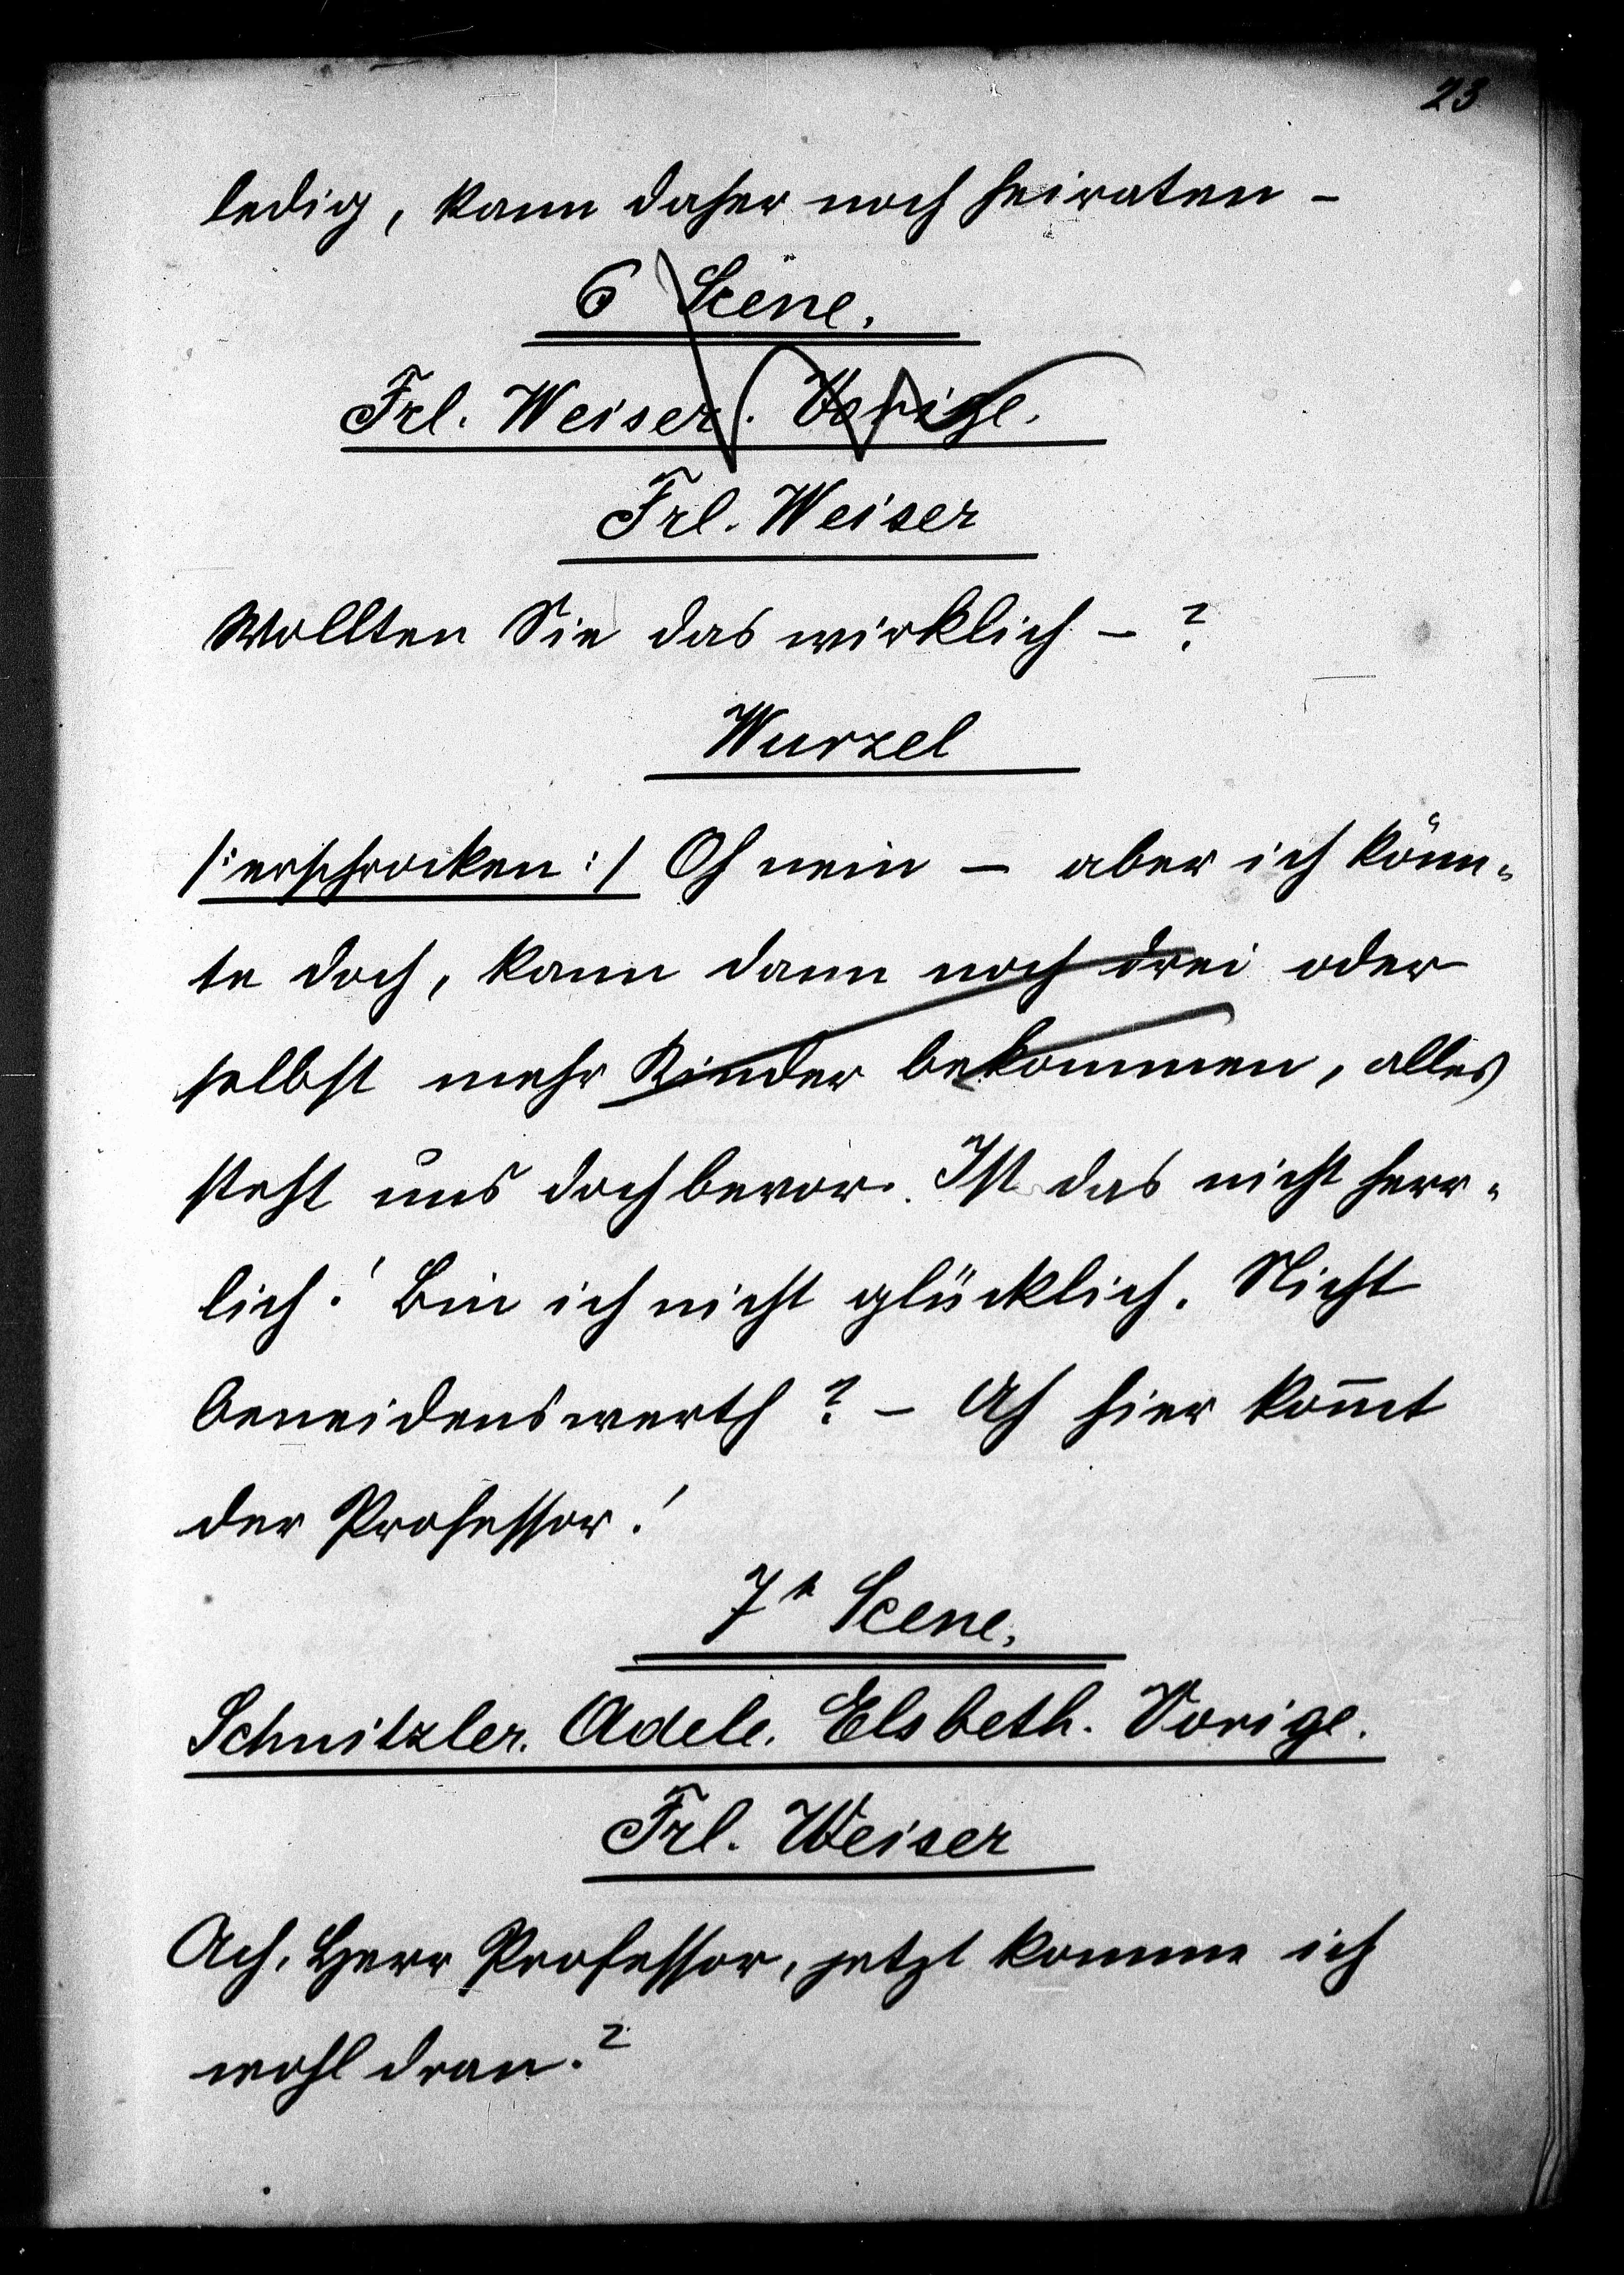 23
ledig, kann daher noch heiraten –
6 Scene.
Frl. Weiser. Vorige.
Frl. Weiser
Wollten Sie das wirklich – ?
Wurzel
/: erschrocken :/ Oh nein – aber ich könn-
te doch, kann dann noch drei oder
selbst mehr Kinder bekommen, alles
steht uns doch bevor. Ist das nicht herr-
lich! Bin ich nicht glücklich. Nicht
beneidenswerth ? – Ah hier kom̅t
der Professor!
7te Scene.
Schnitzler. Adele. Elsbeth. Vorige.
Frl. Weiser
Ach, Herr Professor, jetzt komme ich
wohl dran.?